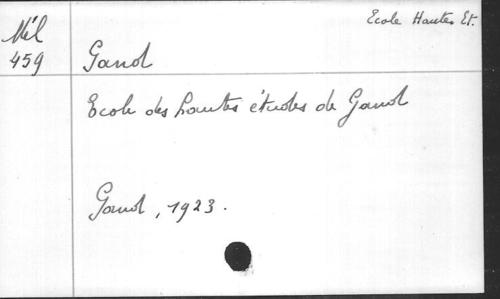 Ecole Hautes Et.
Mél
459
Gand
Ecole des hautes études de Gand
Gand, 1923.